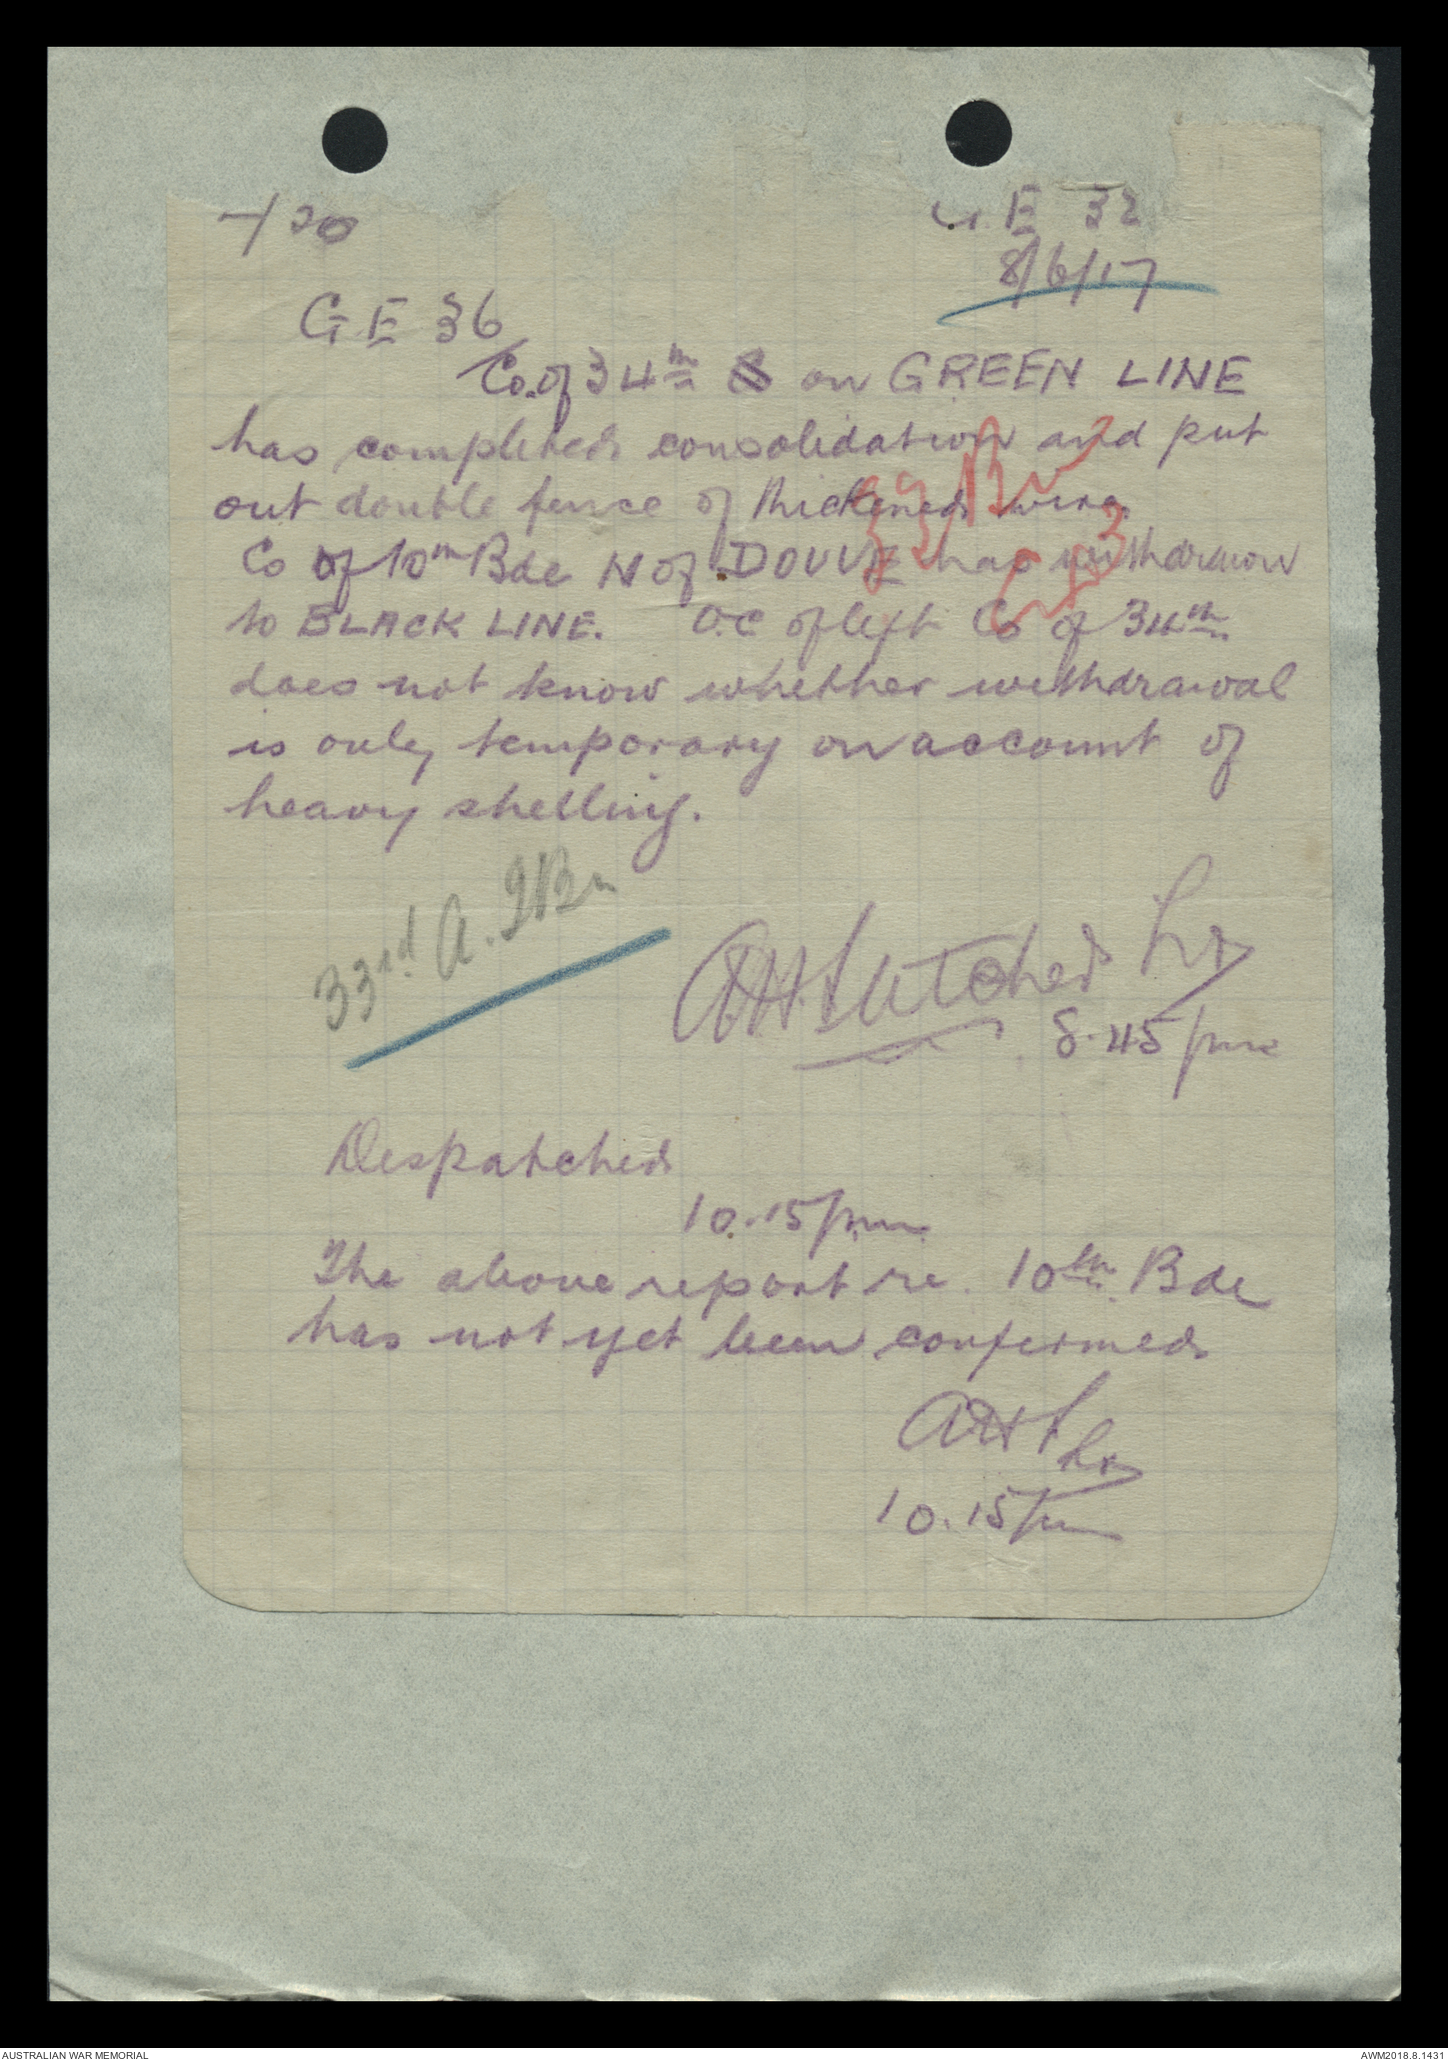 GE 32
8/6/17
GE 36
Co. of 34th on GREEN LINE
has completed consolidation and put
out double fence of thickened wire.
Co of 10th Bde N of DOUVE has withdrawn
to BLACK LINE. O.C of left Co of 34th
does not know whether withdrawal
is only temporary on account of
heavy shelling.
33rd A. I Bn
33 Bn
8.45 pm
Despatched
10.15 pm
The above report re. 10th Bde
has not yet been confirmed
10.15 pm
AUSTRALIAN WAR MEMORIAL
AWM2018.8.1431